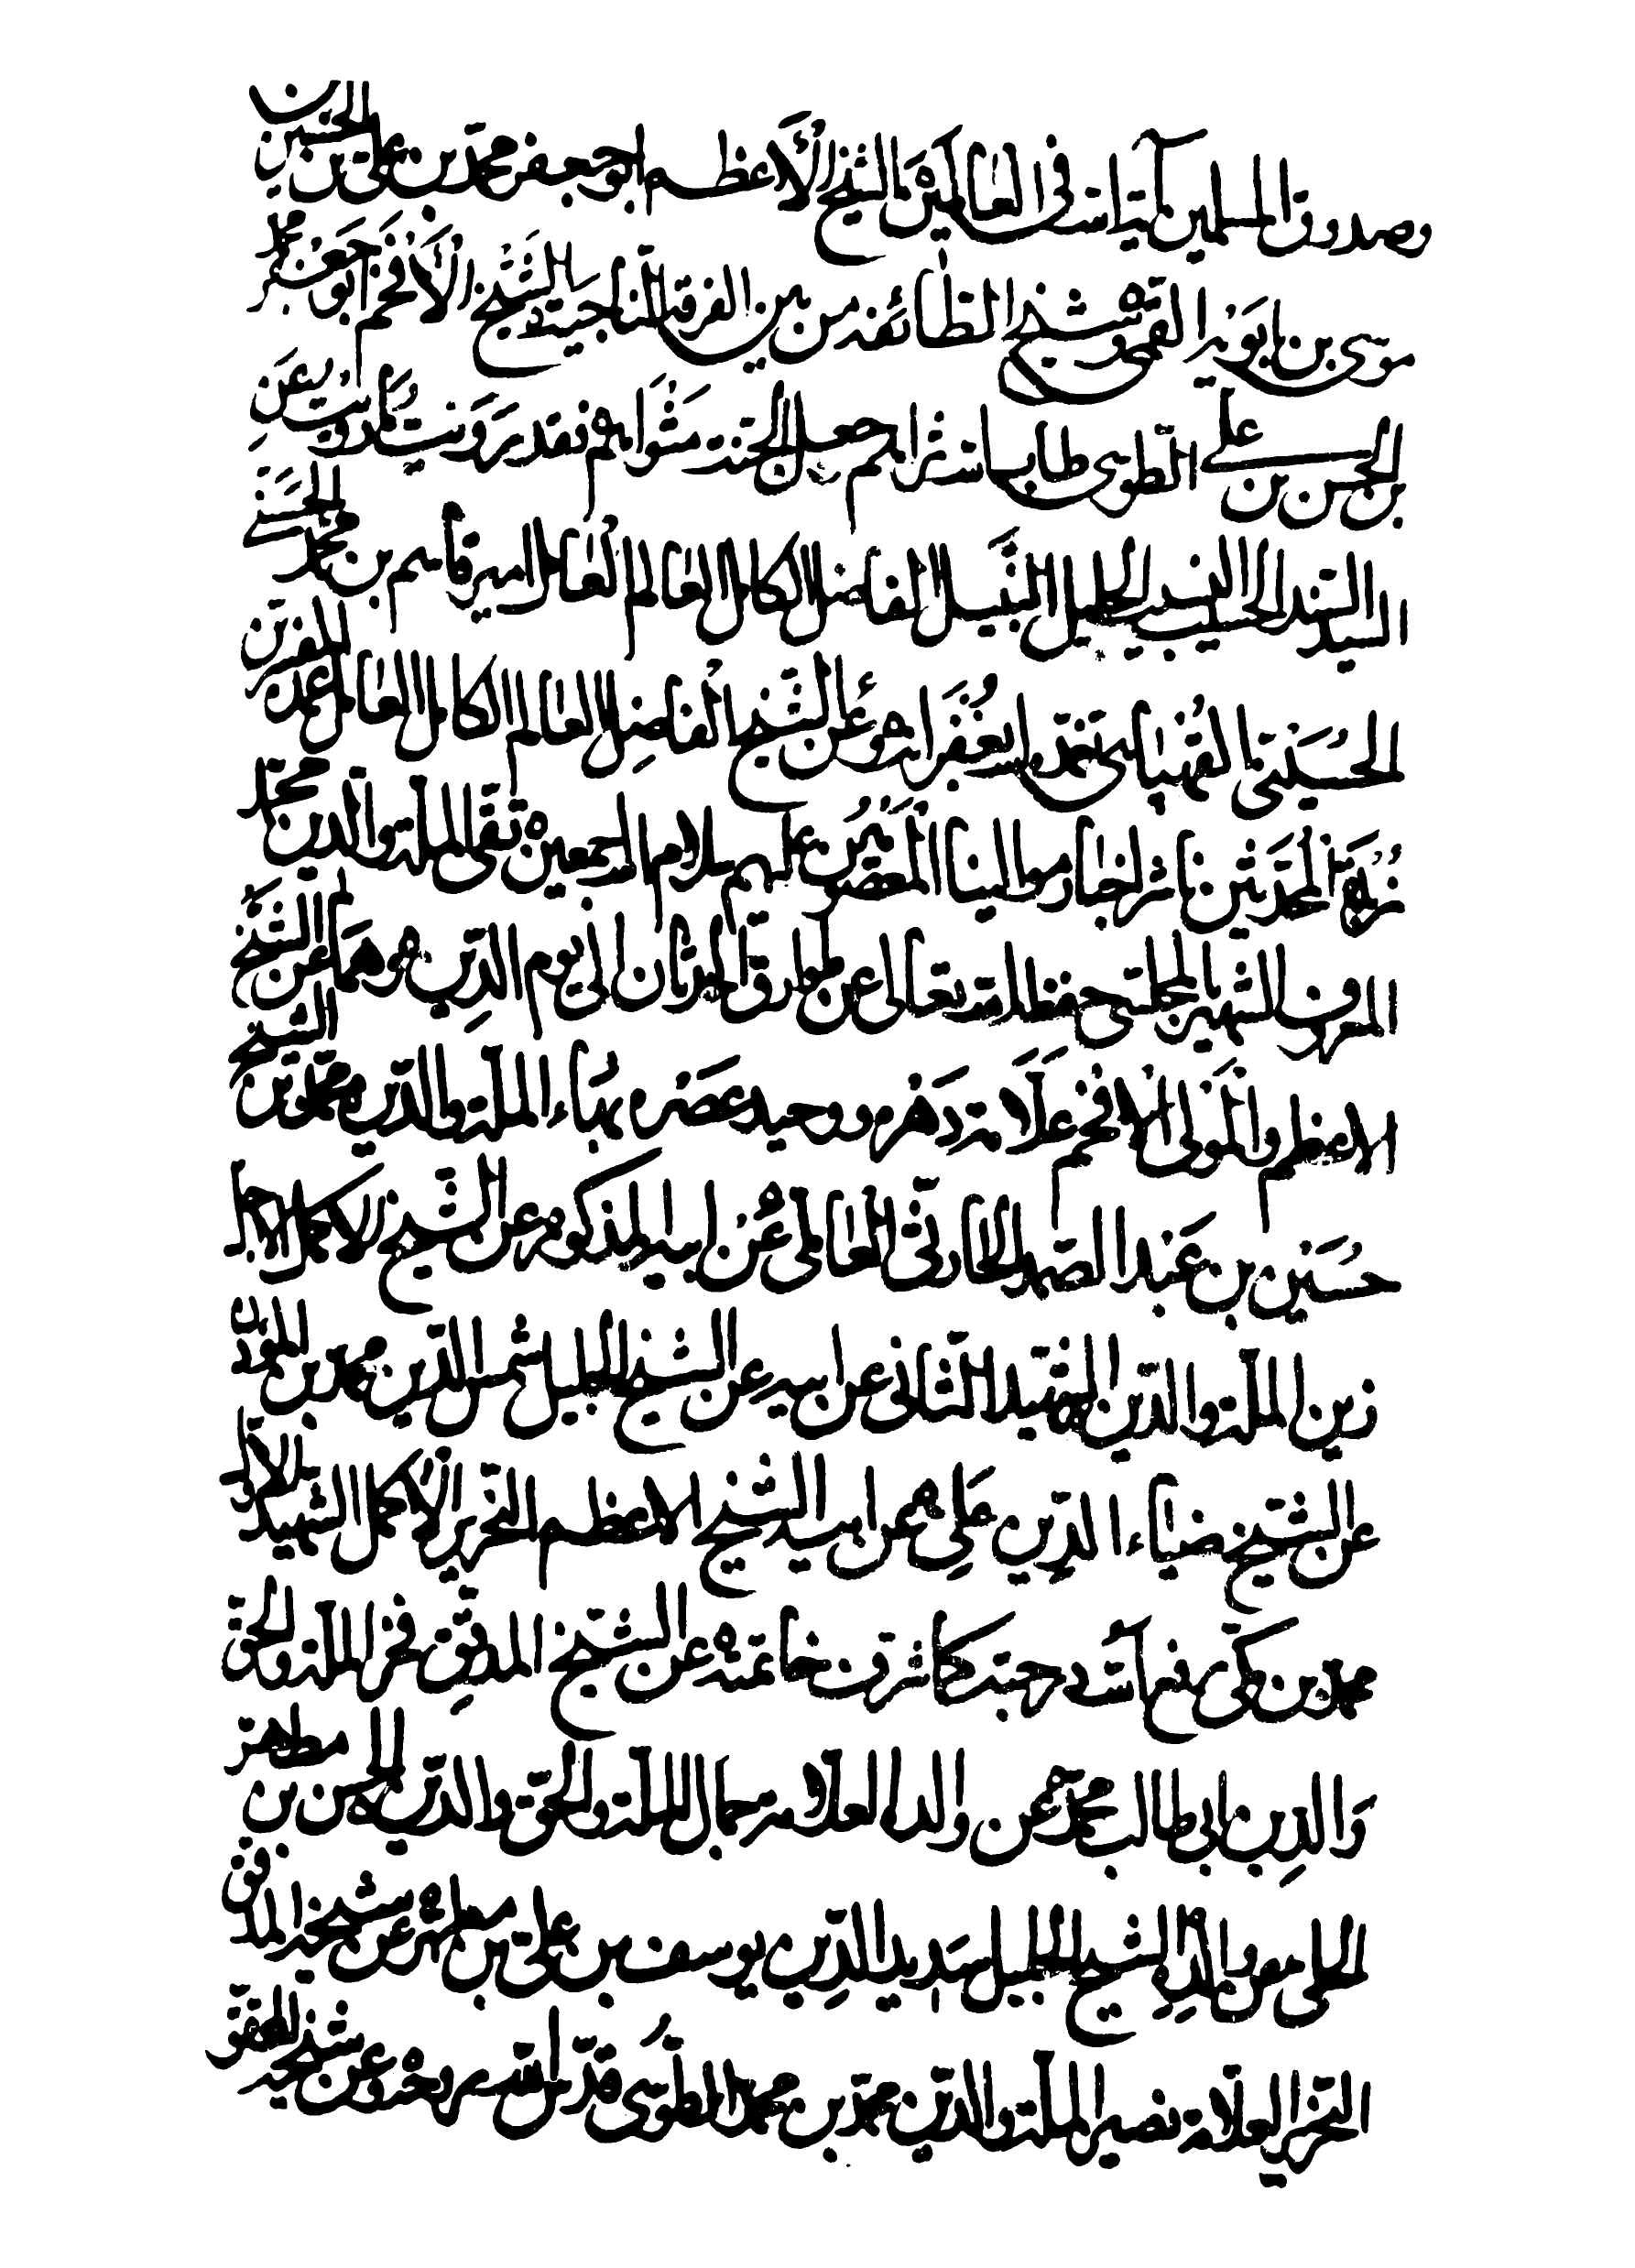 وصدوق المسلمين آية الله في العالمين الشيخ الأعظم ابو جعفر محمد بن علي بن الحسين بن
موسى بن بابويه القمي وشيخ الطائفة من بين الفرقة الناجية الشيخ الأفخم ابو جعفر محمد
بن الحسن بن علي الطوسي طاب الله ثراهم وجعل الجنة مثواهم فقد رويت عن
السيد السند الحسيب النسيب الجليل النبيل الفاضل الكامل العالم العامل امير قاسم بن محمد الحسني
الحسيني القهپائي تغمده الله بغفرانه وهو عن الشيخ الفاضل العالم الكامل العامل عمدة المفسرين
زبدة المحدثين ناشر اخبار موالينا المعصومين عليهم سلام الله اجمعين تقي الملة والدين محمد
المعروف الشهير بالمجلسي حفظه الله تعالى عن طوارق الحدثان الى يوم الدين وهما عن الشيخ
الاعظم والمولى الأفخم علامة دهره ووحيد عصره بهاء الملة والدين محمد بن الشيخ
حسين بن عبد الصمد الحارثي العاملي عن ابيه المذكور عن الشيخ الاكمل الاجل
زين الملة والدين الشهيد الثاني عن ابيه عن الشيخ الجليل شمس الدين محمد بن المؤذن
عن الشيخ ضياء الدين علي عن ابيه الشيخ الاعظم النحرير الأكمل الشهيد الأول
محمد بن مكي رفع الله درجته كما شرف خاتمته عن الشيخ المدقق فخر الملة والحق
والدين ابي طالب محمد عن والده العلامة جمال الملة والحق والدين الحسن بن مطهر
الحلي عن والده الشيخ الجليل سديد الدين يوسف بن علي بن مطهر عن شيخه المدقق
النحرير العلامة نصير الملة والدين محمد بن محمد الطوسي قدس الله روحه وعن شيخه المحقق